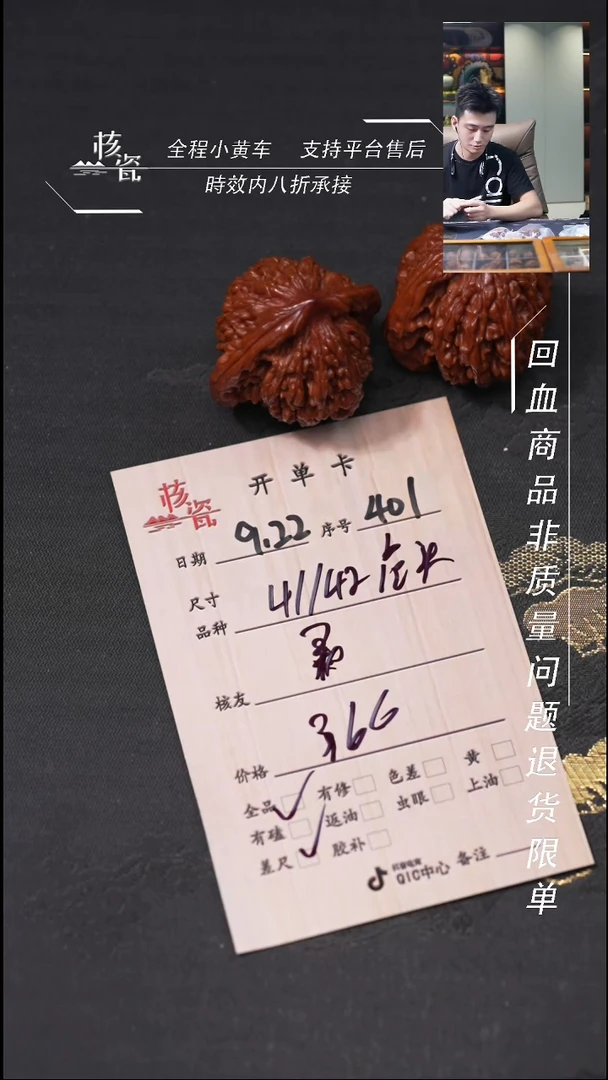 核瓷
全程小黄车 支持平台售后
時效内八折承接
回血商品非质量问题退货限单
核瓷
开单卡
日期 9.22 序号 401
尺寸 41/42
品种
核友
价格 366
全品 有修 色差 黄
有磕 返油 虫眼 上油
差尺 胶补
抖音电商
QIC中心 备注